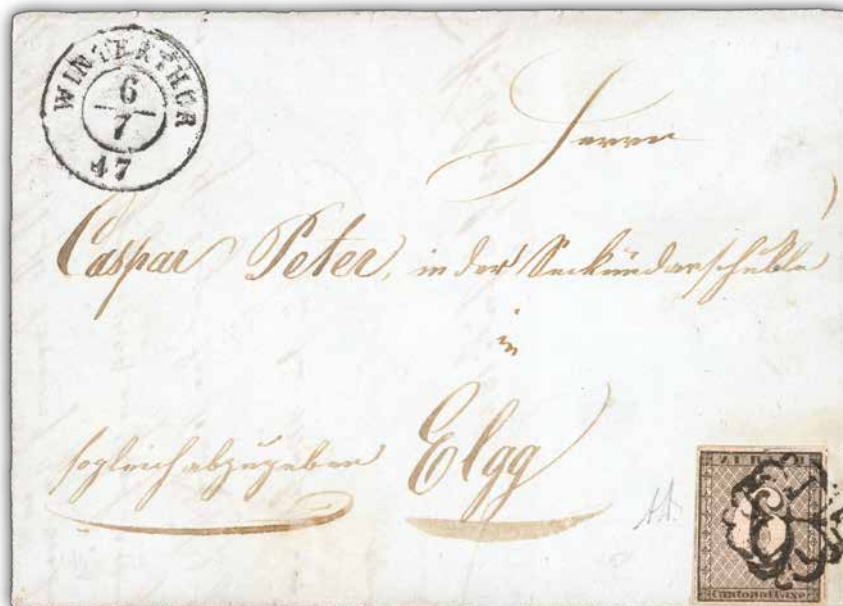 WINTERTHUR
6
7
47
Herrn
Caspar Peter, in der Seckundarschule
in
sogleich abzugeben Elgg
ZÜRICH
6
Cantonal-Taxe.